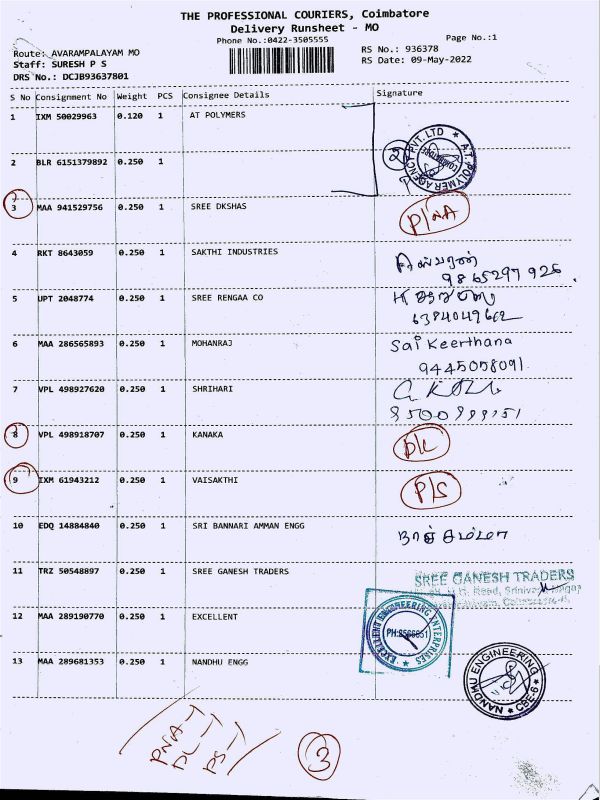 THE PROFESSIONAL COURIERS, Coimbatore
Delivery Runsheet - MO
Phone No.:0422-3505555
Page No.:1
Route: AVARAMPALAYAM MO
RS No.: 936378
Staff: SURESH P S
RS Date: 09-May-2022
DRS No.: DCJB93637801
S No Consignment No Weight PCS Consignee Details Signature
1 IXM 50029963 0.120 1 AT POLYMERS
2 BLR 6151379892 0.250 1
2
A.T. POLYMER AGENCY PVT. LTD
COIMBATORE
3 MAA 941529756 0.250 1 SREE DKSHAS P/NA
4 RKT 8643059 0.250 1 SAKTHI INDUSTRIES
9865297926
5 UPT 2048774 0.250 1 SREE RENGAA CO
6 MAA 286565893 0.250 1 MOHANRAJ Sai Keerthana
9445058091
7 VPL 498927620 0.250 1 SHRIHARI
8 VPL 498918707 0.250 1 KANAKA D/L
9 IXM 61943212 0.250 1 VAISAKTHI P/S
10 EDQ 14884840 0.250 1 SRI BANNARI AMMAN ENGG
11 TRZ 50548897 0.250 1 SREE GANESH TRADERS SREE GANESH TRADERS
12 MAA 289190770 0.250 1 EXCELLENT
EXCELLENT ENGINEERING ENTERPRISES
13 MAA 289681353 0.250 1 NANDHU ENGG
NANDHU ENGINEERING
CBE-6
PNA-1
DL-1
PS-1
3